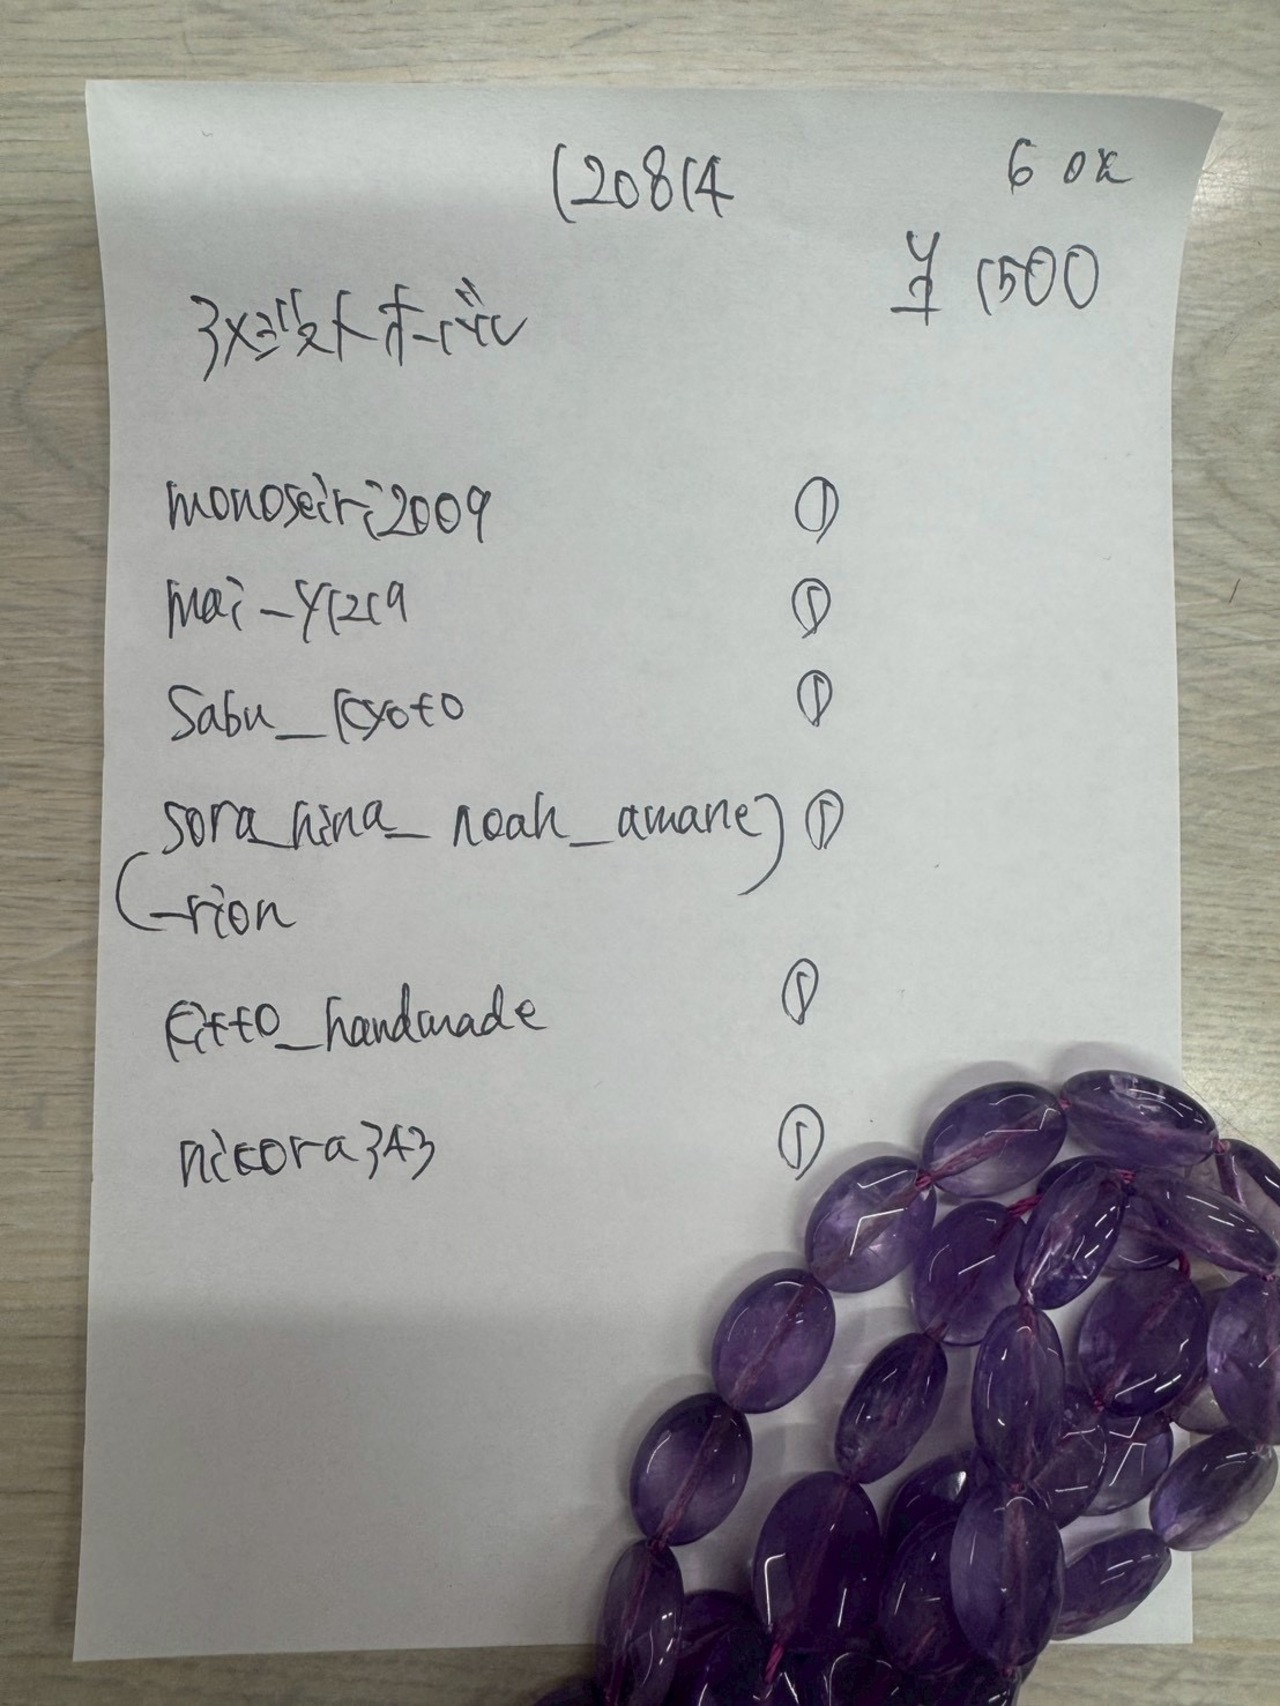 120814
6 ok
¥ 1500
アメジストオーバル
monoseiri2009 ①
mai-y1219 ①
Sabu_kyoto ①
sora_hina_noah_amane ①
_rion
kitto_handmade ①
nicora343 ①